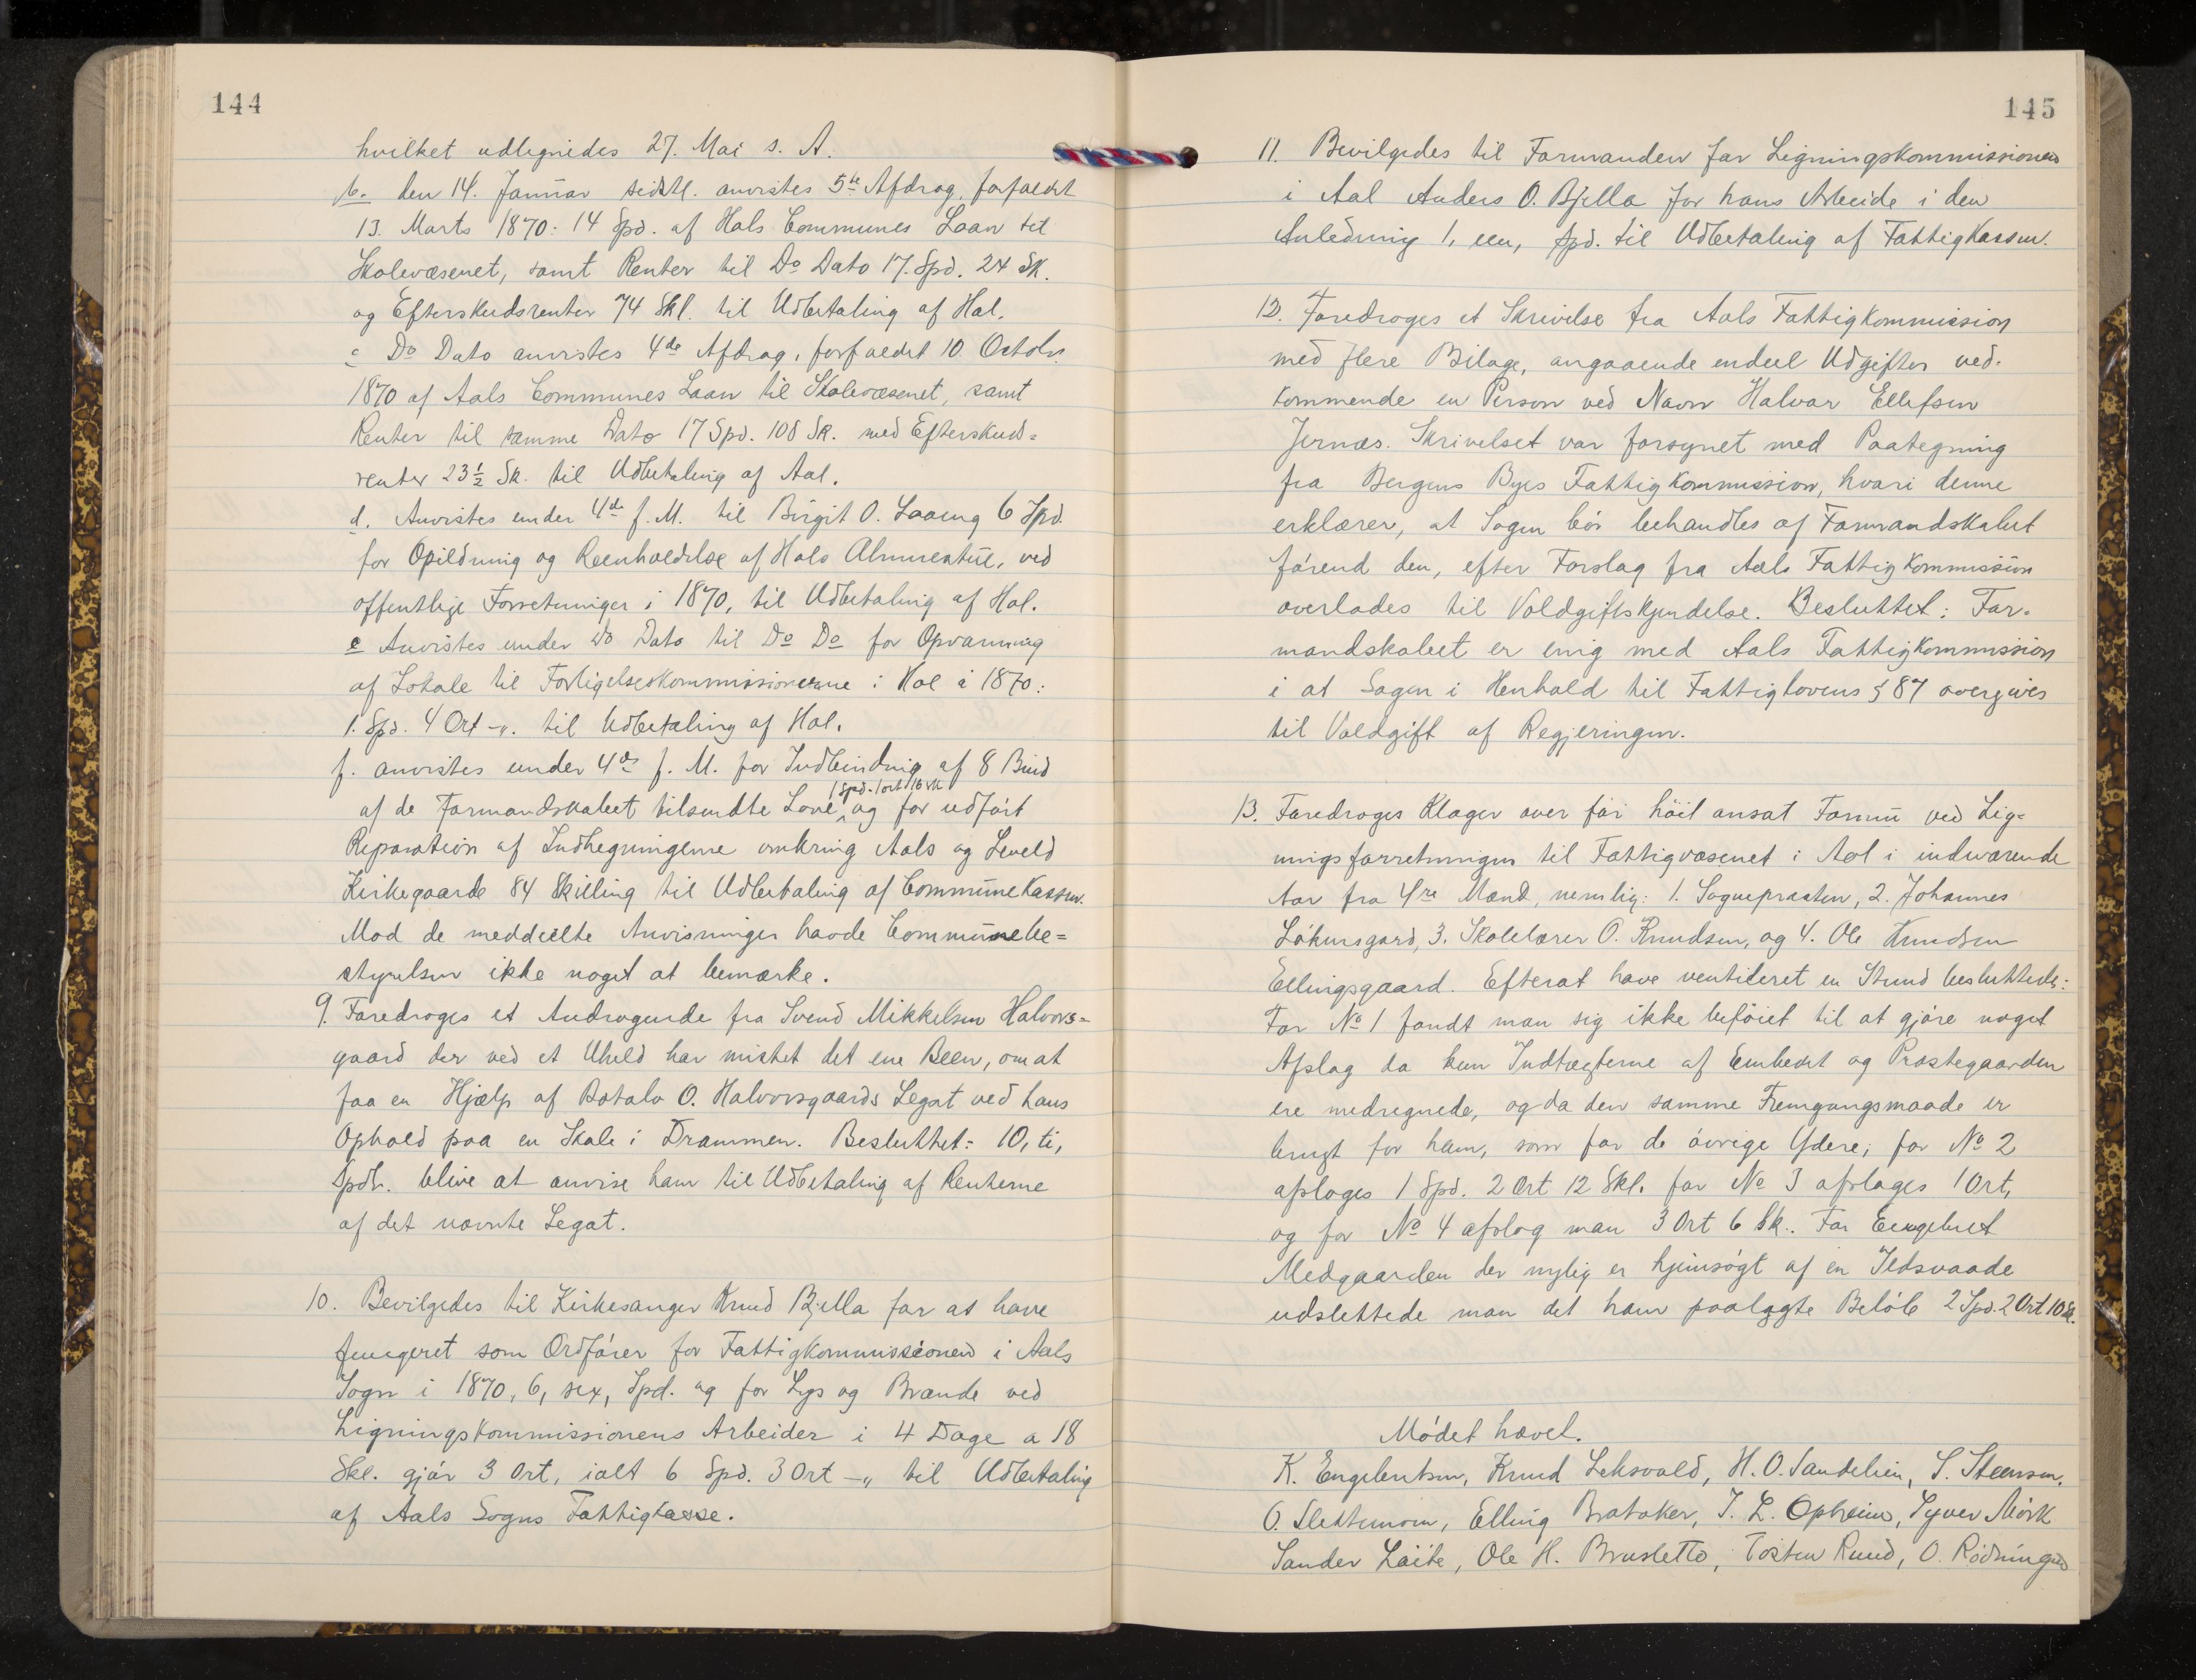 144
hvilket udlignedes 27. Mai s. A.
b. den 14. Januar sidstl. anvistes 5te Afdrag, forfaldet
13. Marts 1870: 14 Spd. af Hols Communes Laan til
Skolevæsenet, samt Renter til Do Dato 17. Spd. 24 Sk.
og Efterskudsrenter 74 Skl. til Udbetaling af Hol.
c Do Dato anvistes 4de Afdrag, forfaldet 10. Octobr.
1870 af Aals Communes Laan til Skolevæsenet, samt
Renter til samme Dato 17 Spd. 108 Sk. med Efterskuds=
renter 23 1/2 Sk. til Udbetaling af Aal.
d. Anvistes under 4de f. M. til Birgit O. Laaeng 6 Spd.
for Opildning og Reenholdelse af Hols Almuestue, ved
offentlige Forretninger i 1870, til Udbetaling af Hol.
e Anvistes under Do Dato til Do Do for Opvarming
af Lokale til Forligelseskommissionerne i Hol i 1870:
1. Spd. 4 Ort -„. til Udbetaling af Hol.
f. anvistes under 4de f. M. for Indbinding af 8 Bind
1 Spd. 1 ort 16 sk
af de Formandskabet tilsendte Love, og for udført
Reparation af Indhegningerne omkring Aals og Leveld
Kirkegaarde 84 Skilling til Udbetaling af CommuneKassen.
Mod de meddeelte Anvisninger havde Communebe=
styrelsen ikke noget at bemærke.
9. Foredroges et Andragende fra Svend Mikkelsen Halvors=
gaard der ved et Uheld har mistet det ene Been, om at
faa en Hjælp af Botolv O. Halvorsgaards Legat ved hans
Ophold paa en Skole i Drammen. Besluttet: 10, ti,
Spdlr. blive at anvise ham til Udbetaling af Renterne
af det nævnte Legat.
10. Bevilgedes til Kirkesanger Knud Bjella for at have
fungeret som Ordfører for Fattigkommissionen i Aals
Sogn i 1870, 6, sex, Spd. og for Lys og Brænde ved
Ligningskommissionens Arbeider i 4 Dage a 18
Skl. gjør 3 Ort, ialt 6 Spd. 3 Ort -„ til Udbetaling
af Aals Sogns Fattigkasse.
145
11. Bevilgedes til Formanden for Ligningskommissionen
i Aal Anders O. Bjella for hans Arbeide i den
Anledning 1, een, Spd. til Udbetaling af FattigKassen.
12. Foredroges et Skrivelse fra Aals Fattigkommission
med flere Bilage, angaaende endeel Udgifter ved=
kommende en Person ved Navn Halvor Ellefsen
Jernæs. Skrivelset var forsynet med Paategning
fra Bergens Byes Fattigkommission, hvori denne
erklærer, at Sagen bør behandles af Formandskabet
førend den, efter Forslag fra Aals Fattigkommission
overlades til Voldgiftskjendelse. Besluttet: For=
mandskabet er enig med Aals Fattigkommission
i at Sagen i Henhold til Fattiglovens § 87 overgives
til Voldgift af Regjeringen.
13. Foredroges Klager over for høit ansat Formue ved Lig=
ningsforretningen til Fattigvæsenet i Aal i indværende
Aar fra 4re Mænd, nemlig: 1. Sognepræsten, 2. Johannes
Løkensgard, 3. Skolelærer O. Knudsen, og 4. Ole Knudsen
Ellingsgaard. Efterat have ventileret en Stund besluttedes:
For No 1 fandt man sig ikke beføiet til at gjøre noget
Afslag da kun Indtægterne af Embedet og Præstegaarden
ere medregnede, og da den samme Fremgangsmaade er
brugt for ham, som for de øvrige Ydere; for No 2
afsloges 1 Spd. 2 Ort 12 Skl. for No 3 afsloges 1 Ort,
og for No 4 afslog man 3 Ort 6 Sk. For Engebret
Medgaarden der nylig er hjemsøgt af en Ildsvaade
udslettede man det ham paalagte Beløb 2 Spd. 2 Ort 10 Sk.
Mødet hævet.
K. Engebretsen, Knud Leksvold, H. O. Sandelien, S. Steensen.
O. Slettemoen, Elling Brataker, T. L. Opheim, Syver Mørk
Sander Løite, Ole H. Brusletto, Tosten Ruud, O. Rødningen